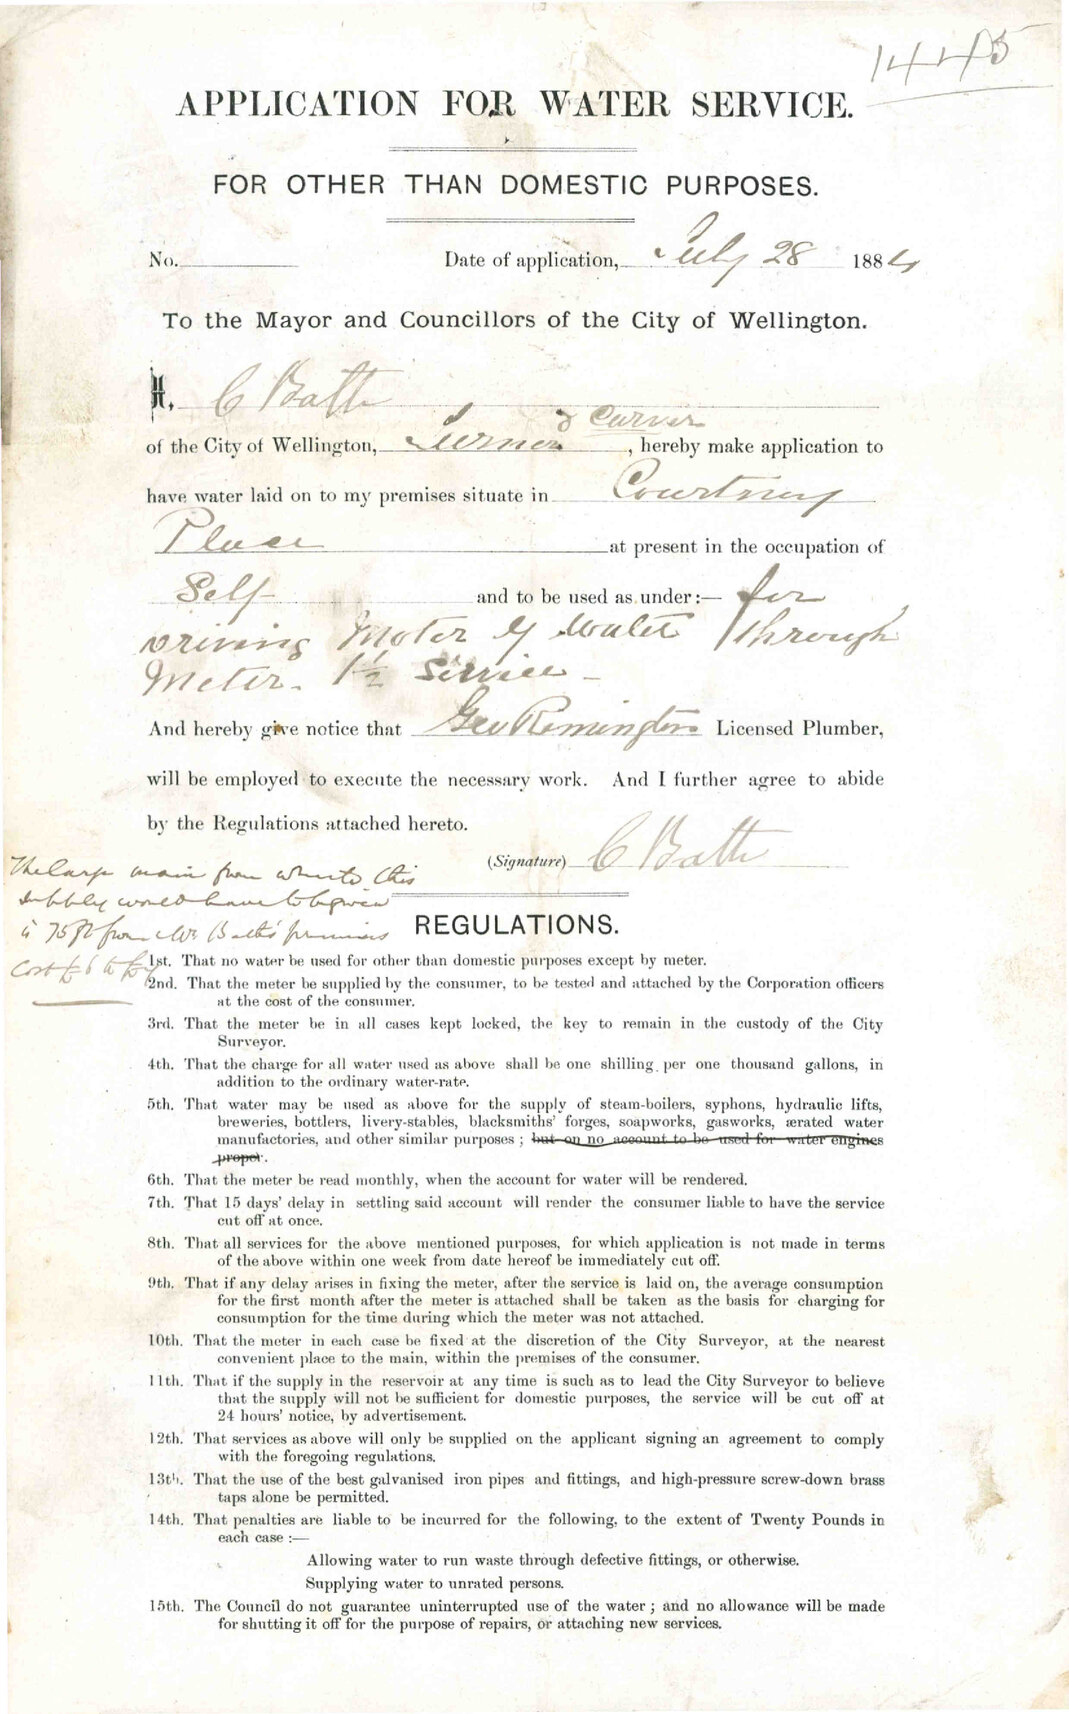 1445
APPLICATION FOR WATER SERVICE.
FOR OTHER THAN DOMESTIC PURPOSES.
No. Date of application, July 28 1884
To the Mayor and Councillors of the City of Wellington.
I, C Batt
& Carver
of the City of Wellington, Turner , hereby make application to
have water laid on to my premises situate in Courtney
Place at present in the occupation of
Self and to be used as under:— for
driving Motor by water through
Meter. 1½ service –
And hereby give notice that Geo Remington Licensed Plumber,
will be employed to execute the necessary work. And I further agree to abide
by the Regulations attached hereto.
(Signature) C Batt
The large main from whence this
supply would have to be given
is 75 ft from Mr Batt's premises
Cost £6 to £7
REGULATIONS.
1st. That no water be used for other than domestic purposes except by meter.
2nd. That the meter be supplied by the consumer, to be tested and attached by the Corporation officers
at the cost of the consumer.
3rd. That the meter be in all cases kept locked, the key to remain in the custody of the City
Surveyor.
4th. That the charge for all water used as above shall be one shilling per one thousand gallons, in
addition to the ordinary water-rate.
5th. That water may be used as above for the supply of steam-boilers, syphons, hydraulic lifts,
breweries, bottlers, livery-stables, blacksmiths' forges, soapworks, gasworks, ærated water
manufactories, and other similar purposes ; but on no account to be used for water engines
proper.
6th. That the meter be read monthly, when the account for water will be rendered.
7th. That 15 days' delay in settling said account will render the consumer liable to have the service
cut off at once.
8th. That all services for the above mentioned purposes, for which application is not made in terms
of the above within one week from date hereof be immediately cut off.
9th. That if any delay arises in fixing the meter, after the service is laid on, the average consumption
for the first month after the meter is attached shall be taken as the basis for charging for
consumption for the time during which the meter was not attached.
10th. That the meter in each case be fixed at the discretion of the City Surveyor, at the nearest
convenient place to the main, within the premises of the consumer.
11th. That if the supply in the reservoir at any time is such as to lead the City Surveyor to believe
that the supply will not be sufficient for domestic purposes, the service will be cut off at
24 hours' notice, by advertisement.
12th. That services as above will only be supplied on the applicant signing an agreement to comply
with the foregoing regulations.
13th. That the use of the best galvanised iron pipes and fittings, and high-pressure screw-down brass
taps alone be permitted.
14th. That penalties are liable to be incurred for the following, to the extent of Twenty Pounds in
each case :—
Allowing water to run waste through defective fittings, or otherwise.
Supplying water to unrated persons.
15th. The Council do not guarantee uninterrupted use of the water ; and no allowance will be made
for shutting it off for the purpose of repairs, or attaching new services.